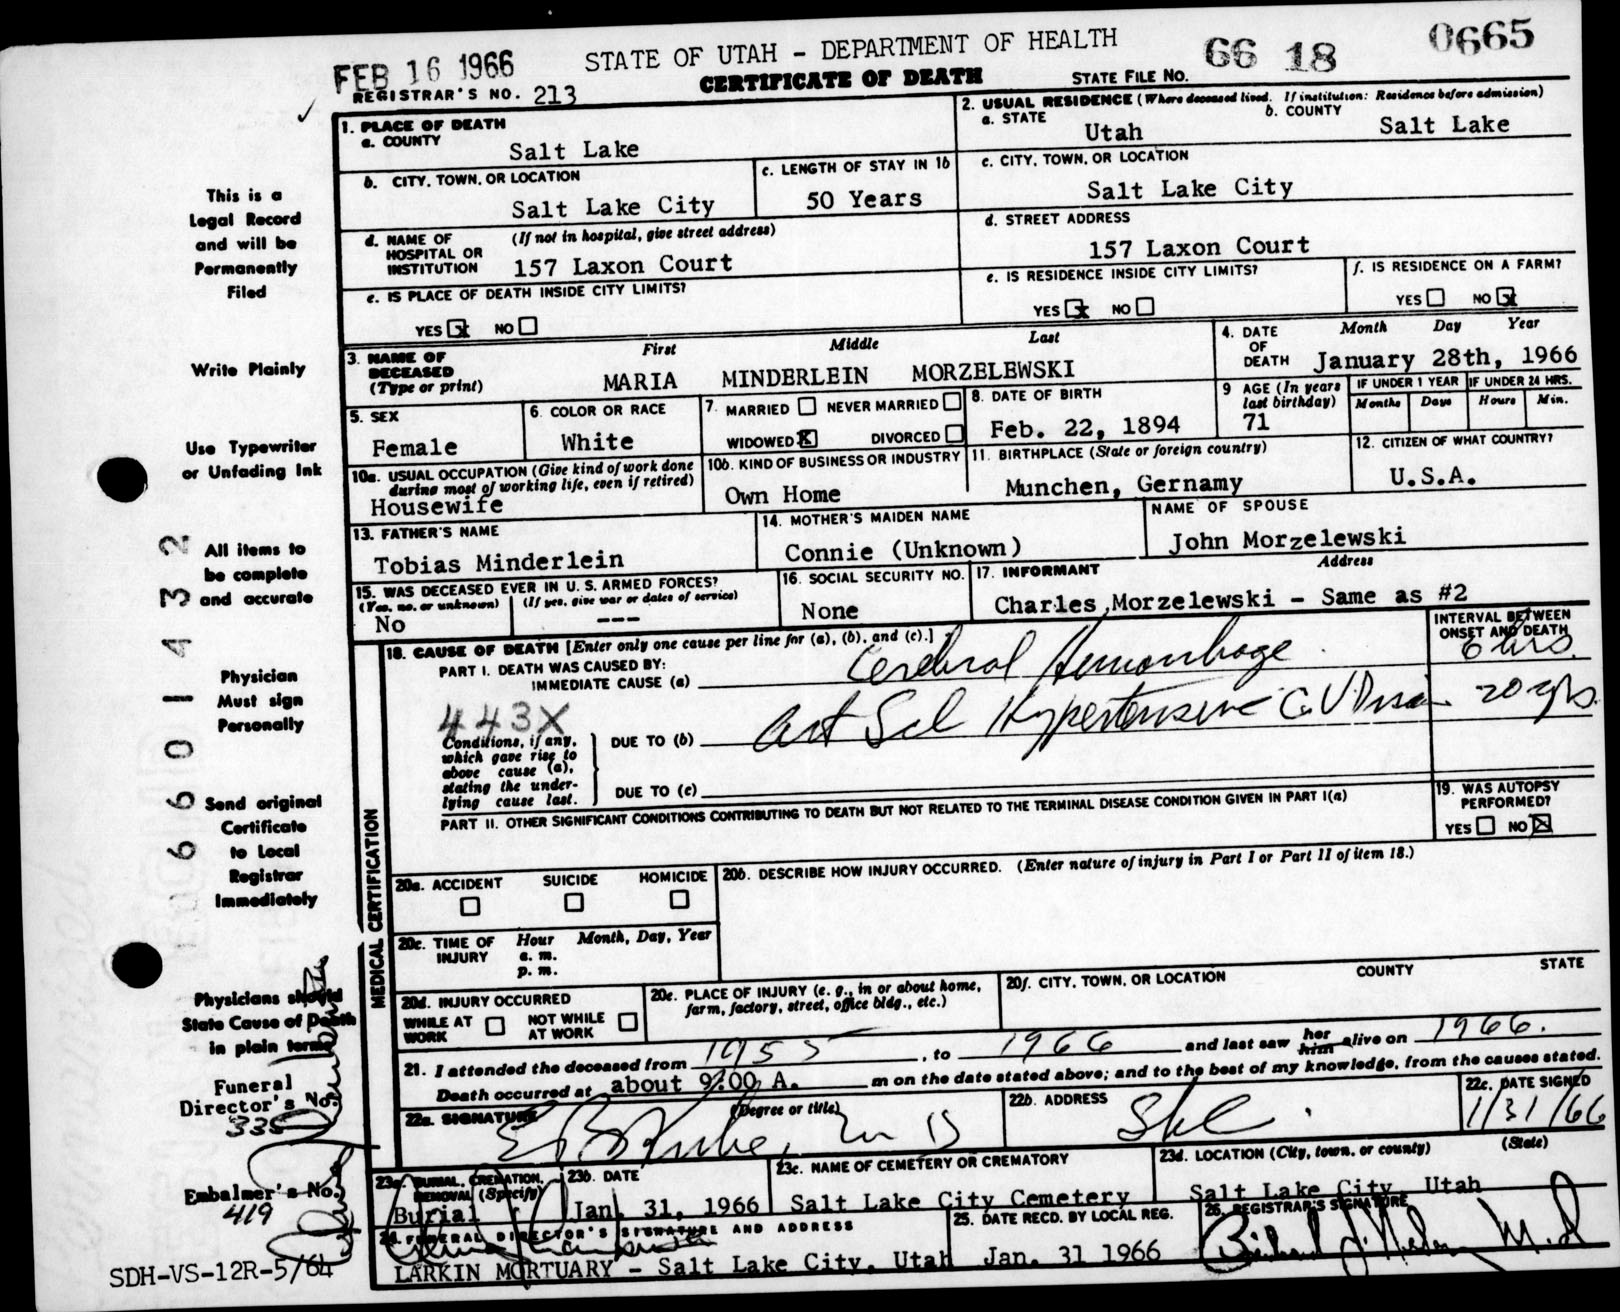 FEB 16 1966
STATE OF UTAH – DEPARTMENT OF HEALTH
66 18 0665
CERTIFICATE OF DEATH
STATE FILE NO.
REGISTRAR'S NO. 213
1. PLACE OF DEATH
a. COUNTY
Salt Lake
2. USUAL RESIDENCE (Where deceased lived. If institution: Residence before admission)
a. STATE
Utah
b. COUNTY
Salt Lake
b. CITY, TOWN, OR LOCATION
Salt Lake City
c. LENGTH OF STAY IN 1b
50 Years
c. CITY, TOWN, OR LOCATION
Salt Lake City
d. NAME OF HOSPITAL OR INSTITUTION
(If not in hospital, give street address)
157 Laxon Court
d. STREET ADDRESS
157 Laxon Court
e. IS PLACE OF DEATH INSIDE CITY LIMITS?
YES x NO
e. IS RESIDENCE INSIDE CITY LIMITS?
YES x NO
f. IS RESIDENCE ON A FARM?
YES NO x
3. NAME OF DECEASED (Type or print)
First Middle Last
MARIA MINDERLEIN MORZELEWSKI
4. DATE OF DEATH
Month Day Year
January 28th, 1966
5. SEX
Female
6. COLOR OR RACE
White
7. MARRIED NEVER MARRIED
WIDOWED X DIVORCED
8. DATE OF BIRTH
Feb. 22, 1894
9 AGE (In years last birthday)
71
IF UNDER 1 YEAR
Months Days
IF UNDER 24 HRS.
Hours Min.
10a. USUAL OCCUPATION (Give kind of work done during most of working life, even if retired)
Housewife
10b. KIND OF BUSINESS OR INDUSTRY
Own Home
11. BIRTHPLACE (State or foreign country)
Munchen, Gernamy
12. CITIZEN OF WHAT COUNTRY?
U.S.A.
13. FATHER'S NAME
Tobias Minderlein
14. MOTHER'S MAIDEN NAME
Connie (Unknown)
NAME OF SPOUSE
John Morzelewski
15. WAS DECEASED EVER IN U. S. ARMED FORCES?
(Yes, no, or unknown) (If yes, give war or dates of service)
No ---
16. SOCIAL SECURITY NO.
None
17. INFORMANT Address
Charles Morzelewski – Same as #2
18. CAUSE OF DEATH [Enter only one cause per line for (a), (b), and (c).]
INTERVAL BETWEEN ONSET AND DEATH
PART I. DEATH WAS CAUSED BY:
IMMEDIATE CAUSE (a) Cerebral Hemorrhage 6 hrs.
443X
Conditions, if any, which gave rise to above cause (a), stating the underlying cause last.
DUE TO (b) Art Scl Hypertensive C.V. 20 yrs.
DUE TO (c)
PART II. OTHER SIGNIFICANT CONDITIONS CONTRIBUTING TO DEATH BUT NOT RELATED TO THE TERMINAL DISEASE CONDITION GIVEN IN PART I(a)
19. WAS AUTOPSY PERFORMED?
YES NO X
MEDICAL CERTIFICATION
20a. ACCIDENT SUICIDE HOMICIDE
20b. DESCRIBE HOW INJURY OCCURRED. (Enter nature of injury in Part I or Part II of item 18.)
20c. TIME OF INJURY
Hour Month, Day, Year
a. m.
p. m.
20d. INJURY OCCURRED
WHILE AT WORK NOT WHILE AT WORK
20e. PLACE OF INJURY (e. g., in or about home, farm, factory, street, office bldg., etc.)
20f. CITY, TOWN, OR LOCATION COUNTY STATE
21. I attended the deceased from 1955, to 1966 and last saw her him alive on 1966.
Death occurred at about 9:00 A. m on the date stated above; and to the best of my knowledge, from the causes stated.
22a. SIGNATURE (Degree or title)
22b. ADDRESS
SLC
22c. DATE SIGNED
1/31/66
23a. BURIAL, CREMATION, REMOVAL (Specify)
Burial
23b. DATE
Jan. 31, 1966
23c. NAME OF CEMETERY OR CREMATORY
Salt Lake City Cemetery
23d. LOCATION (City, town, or county) (State)
Salt Lake City, Utah
24. FUNERAL DIRECTOR'S SIGNATURE AND ADDRESS
LARKIN MORTUARY – Salt Lake City, Utah
25. DATE RECD. BY LOCAL REG.
Jan. 31 1966
26. REGISTRAR'S SIGNATURE
This is a
Legal Record
and will be
Permanently
Filed
Write Plainly
Use Typewriter
or Unfading Ink
All items to
be complete
and accurate
Physician
Must sign
Personally
Send original
Certificate
to Local
Registrar
Immediately
Physicians should
State Cause of Death
in plain terms
Funeral
Director's No.
335
Embalmer's No.
419
66 0143 2
SDH-VS-12R-5/64